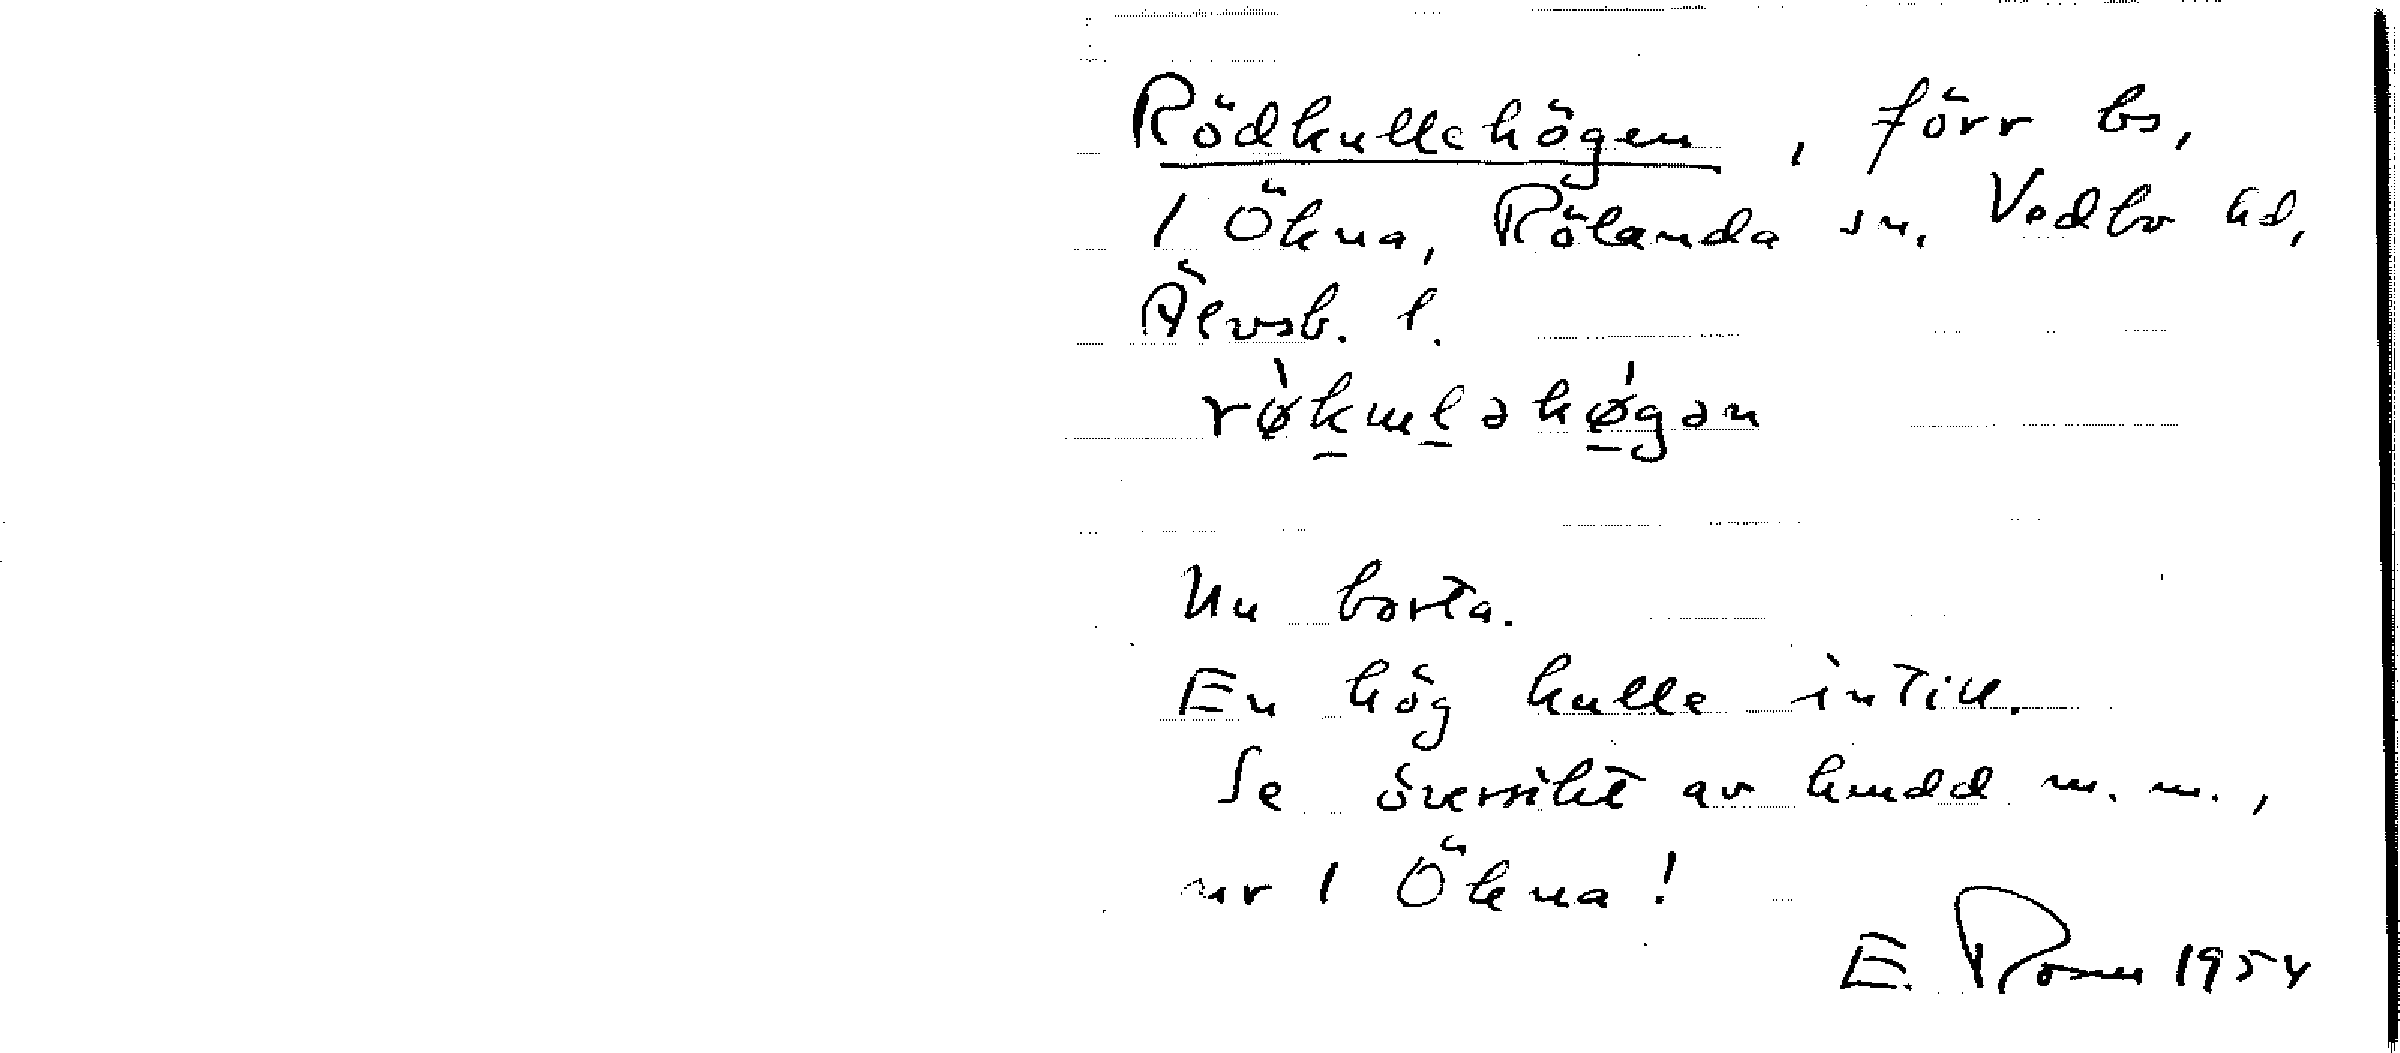 Rödkullehögen, förr bs,
1 Ökna, Rölanda sn, Vedbo hd,
Älvsb. l.
rø̀kɯləhǿgən
Nu borta.
En hög kulle intill.
Se översikt av hmdd m. m.,
nr 1 Ökna!
E. Rosen 1954